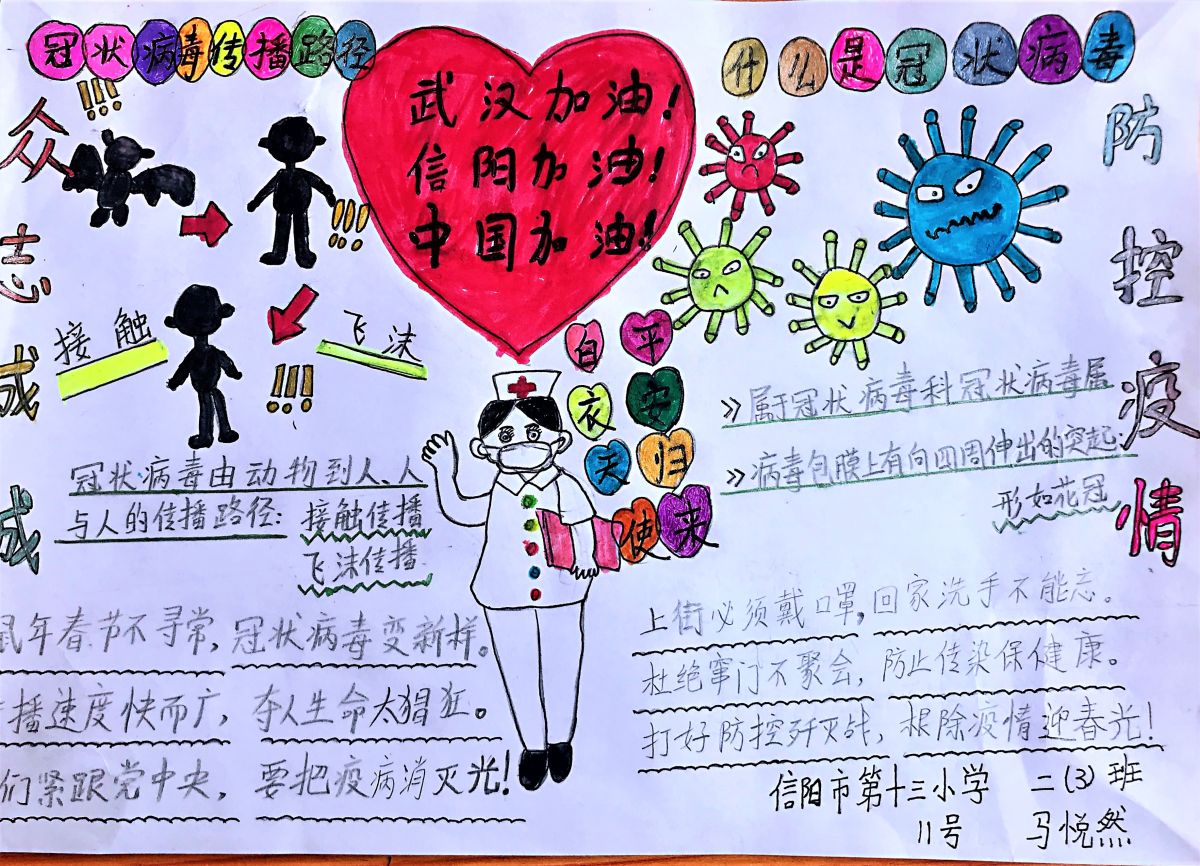 冠状病毒传播路径
什么是冠状病毒
众志成成
防控疫情
武汉加油！
信阳加油！
中国加油！
!!!
!!!
!!!
接触
飞沫
白衣天使
平安归来
冠状病毒由动物到人、人
与人的传播路径：接触传播
飞沫传播
》属于冠状病毒科冠状病毒属
》病毒包膜上有向四周伸出的突起
形如花冠
鼠年春节不寻常，冠状病毒变新样。
播速度快而广，夺人生命太猖狂。
们紧跟党中央，要把疫病消灭光！
上街必须戴口罩，回家洗手不能忘。
杜绝窜门不聚会，防止传染保健康。
打好防控歼灭战，根除疫情迎春光！
信阳市第十三小学 二(3)班
11号 马悦然